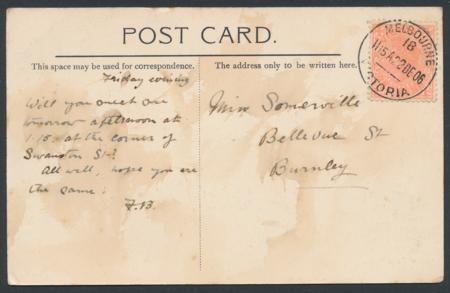 POST CARD.
This space may be used for correspondence.
The address only to be written here.
Friday evening
Will you meet me
tomorrow afternoon at
1.15. at the corner of
Swanston St?
All well, hope you are
the same.
F.B.
Miss Somerville
Bellevue St
Burnley
MELBOURNE
18
11 15 A 22 DE 06
VICTORIA